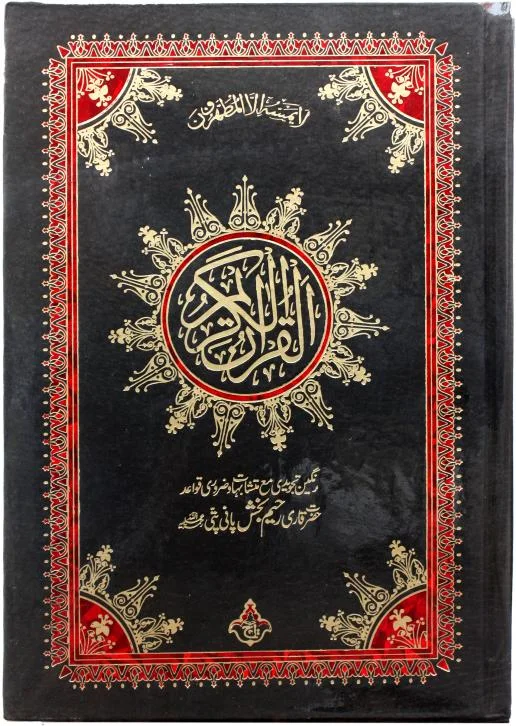 لا یمسہ الا المطھرون
القرآن الکریم
رنگین تجویدی مع متشابہات و ضروری قواعد
حضرت قاری رحیم بخش پانی پتی